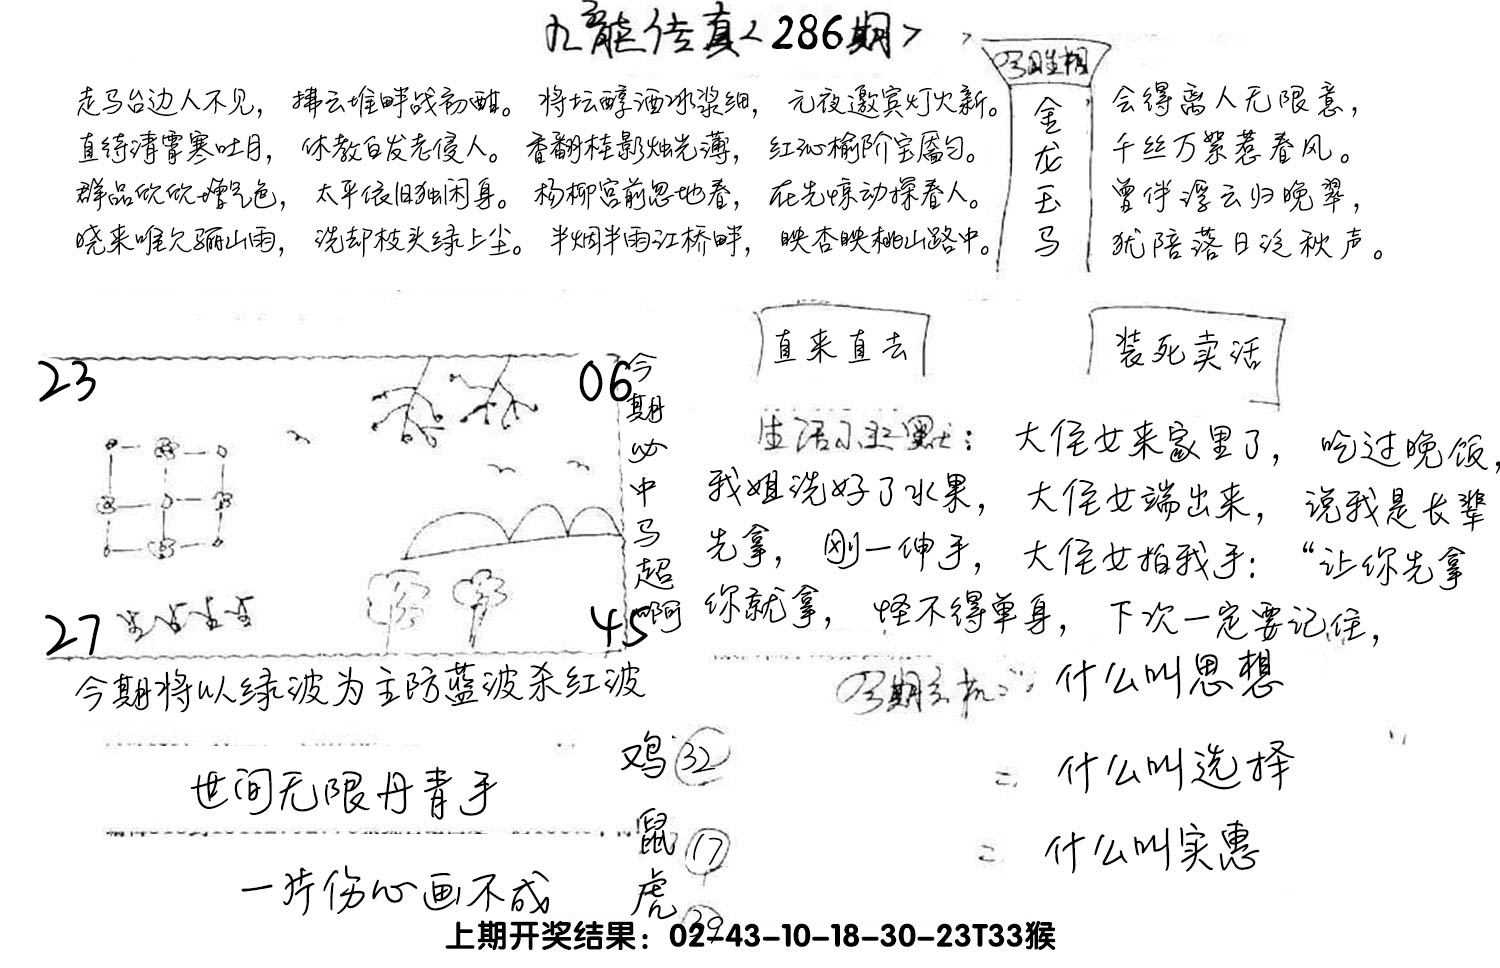 九龙传真<286期>
走马台边人不见，拂云堆畔战初酣。将坛醇酒冰浆细，元夜邀宾灯火新。
直待清霄寒吐月，休教白发老侵人。香翻桂影烛光薄，红沁榆阶宝靥匀。
群品欣欣增气色，太平依旧独闲身。杨柳宫前忽地春，在先惊动探春人。
晓来唯欠骊山雨，洗却枝头绿上尘。半烟半雨江桥畔，映杏映桃山路中。
今期生相
金
龙
玉
马
会得离人无限意，
千丝万絮惹春风。
曾伴浮云归晚翠，
犹陪落日泛秋声。
23
06
27
45
今期必中马超啊
直来直去
装死卖活
生活小幽默：大侄女来家里了，吃过晚饭，
我姐洗好了水果，大侄女端出来，说我是长辈
先拿，刚一伸手，大侄女拍我手：“让你先拿
你就拿，怪不得单身，下次一定要记住，
今期将以绿波为主防蓝波杀红波
今期玄机：什么叫思想
什么叫选择
什么叫实惠
世间无限丹青手
一片伤心画不成
鸡32
鼠17
虎39
上期开奖结果：02-43-10-18-30-23T33猴